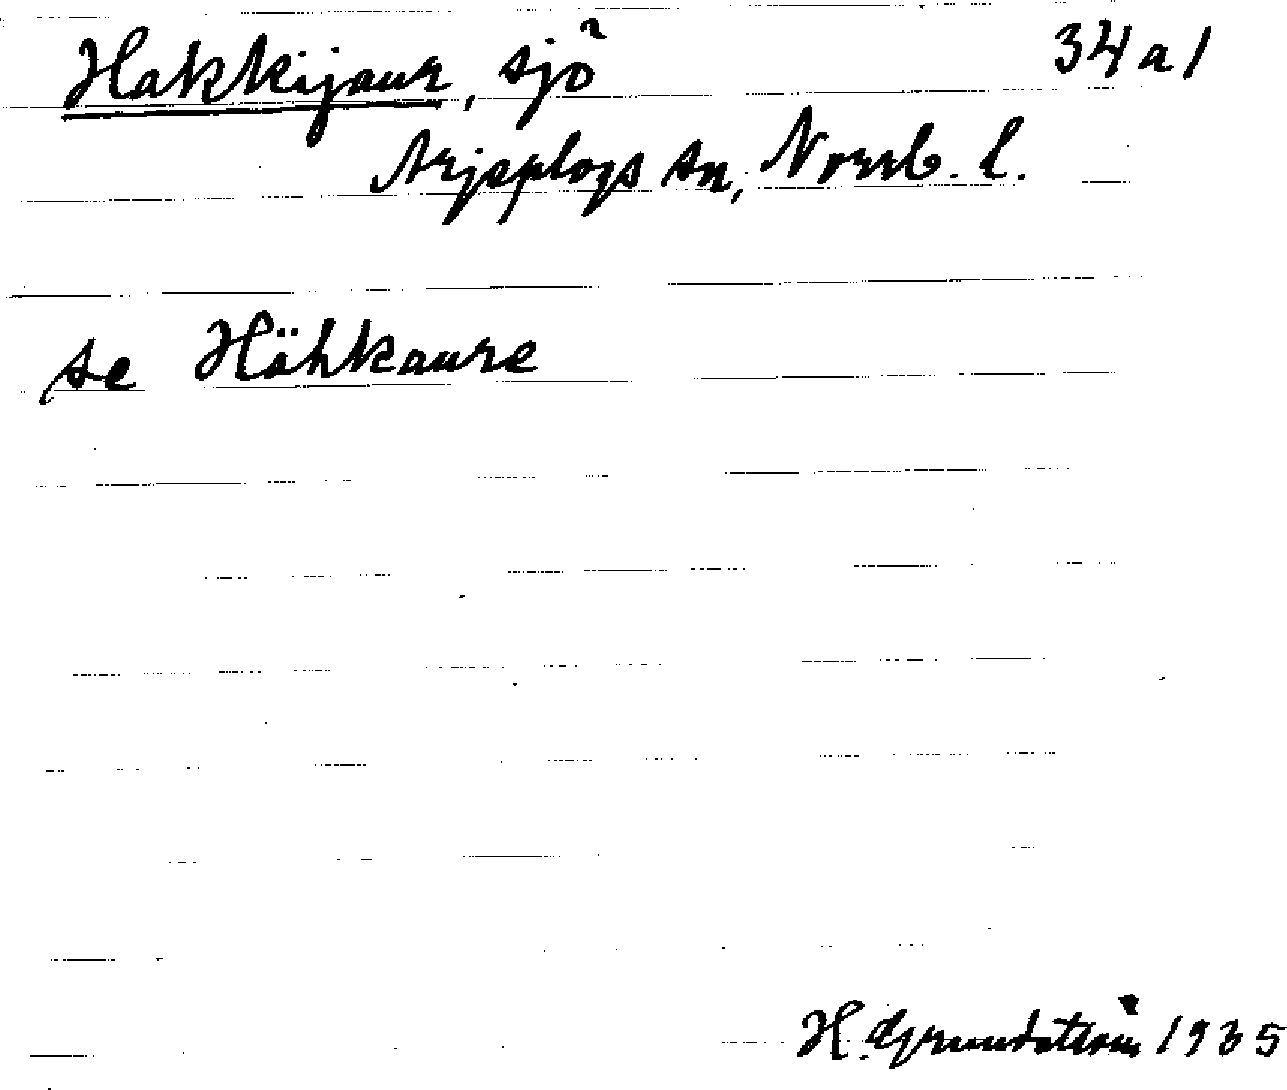 Hakkijaur, sjö 34 a 1
Arjeplogs sn, Norrb. l.
se Hähkaure
H. Grundström 1935